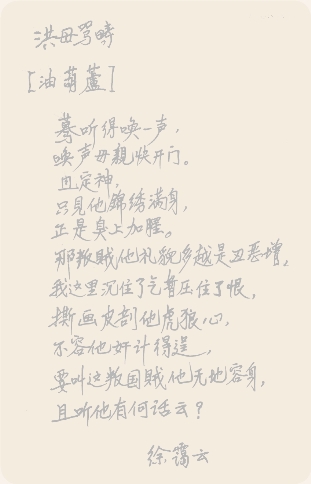 洪母骂畴
[油葫蘆]
蓦听得唤一声,
唤声母親快开门。
且定神,
只見他錦绣满身,
正是臭上加腥。
那叛贼他礼貌多越是丑恶增,
我这里沉住了气暂压住了恨,
撕画皮剖他虎狼心,
不容他奸计得逞,
要叫这叛国贼他无地容身,
且听他有何话云?
徐霭云